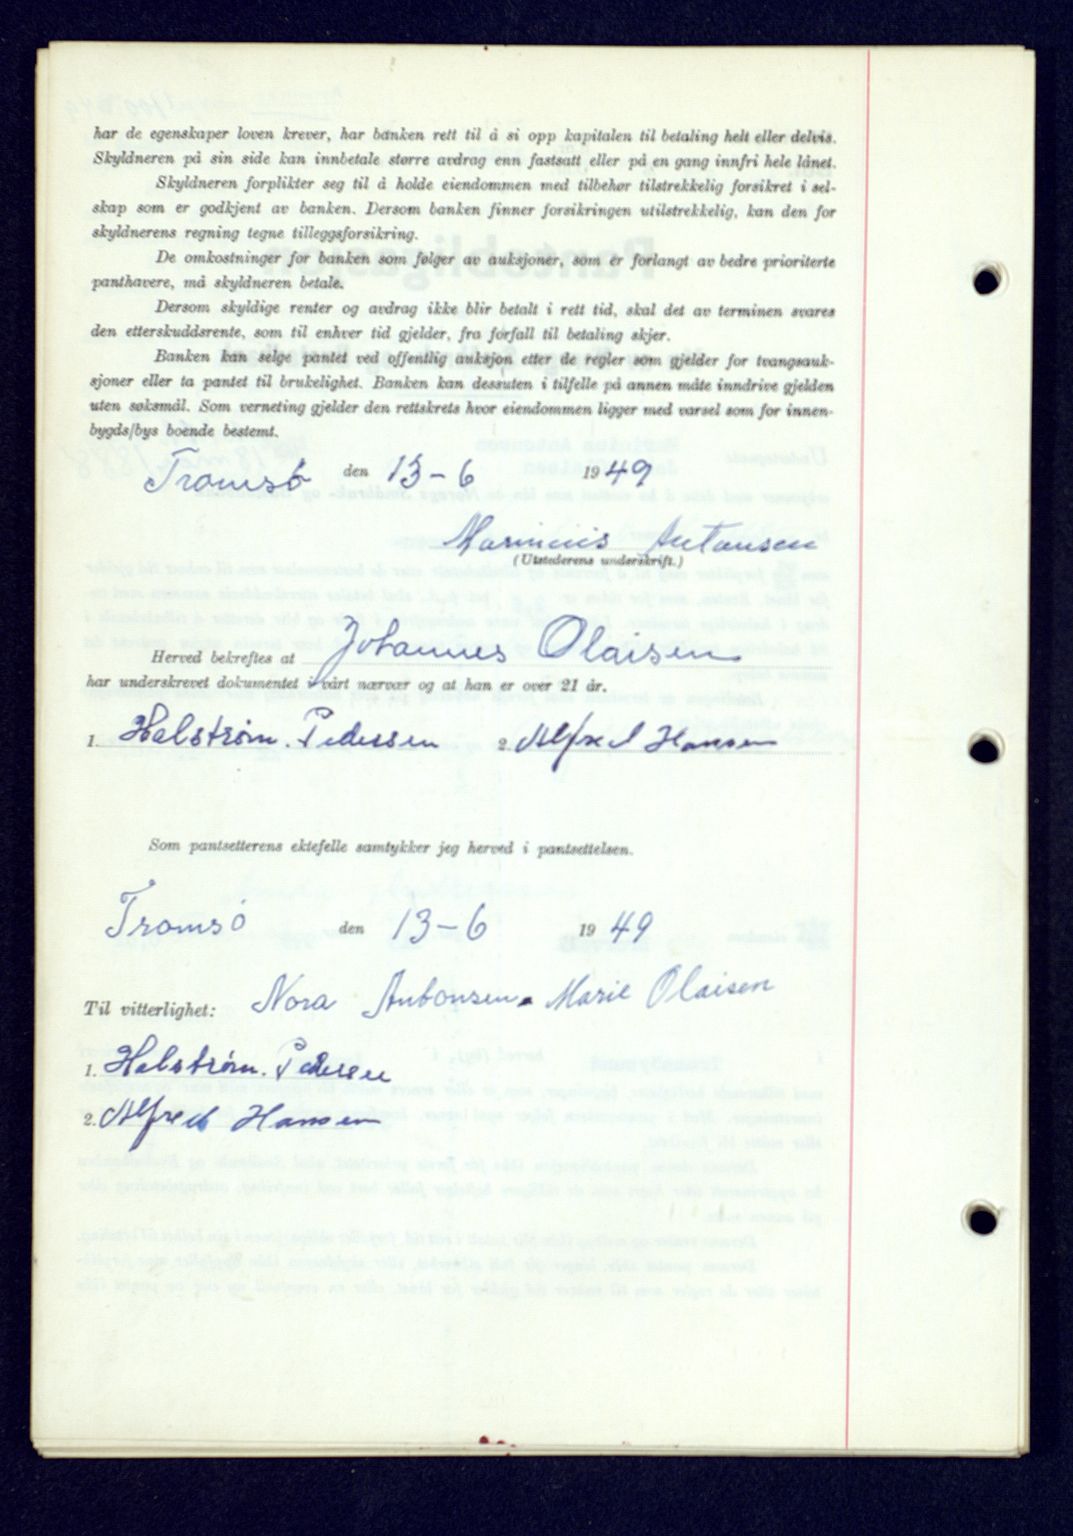 har de egenskaper loven krever, har banken rett til å si opp kapitalen til betaling helt eller delvis.
Skyldneren på sin side kan innbetale større avdrag enn fastsatt eller på en gang innfri hele lånet.
Skyldneren forplikter seg til å holde eiendommen med tilbehør tilstrekkelig forsikret i sel-
skap som er godkjent av banken. Dersom banken finner forsikringen utilstrekkelig, kan den for
skyldnerens regning tegne tilleggsforsikring.
De omkostninger for banken som følger av auksjoner, som er forlangt av bedre prioriterte
panthavere, må skyldneren betale.
Dersom skyldige renter og avdrag ikke blir betalt i rett tid, skal det av terminen svares
den etterskuddsrente, som til enhver tid gjelder, fra forfall til betaling skjer.
Banken kan selge pantet ved offentlig auksjon etter de regler som gjelder for tvangsauk-
sjoner eller ta pantet til brukelighet. Banken kan dessuten i tilfelle på annen måte inndrive gjelden
uten søksmål. Som verneting gjelder den rettskrets hvor eiendommen ligger med varsel som for innen-
bygds/bys boende bestemt.
Tromsö den 13-6 1949
Marinius Antonsen
(Utstederens underskrift.)
Johannes Olaisen
Herved bekreftes at
har underskrevet dokumentet i vårt nærvær og at han er over 21 år.
1. Halstrøm. Pedersen 2. Alfred Hansen
Som pantsetterens ektefelle samtykker jeg herved i pantsettelsen.
Tromsö den 13-6 1949
Til vitterlighet: Nora Antonsen. Marie Olaisen
1. Halstrøm. Pedersen
2. Alfred Hansen